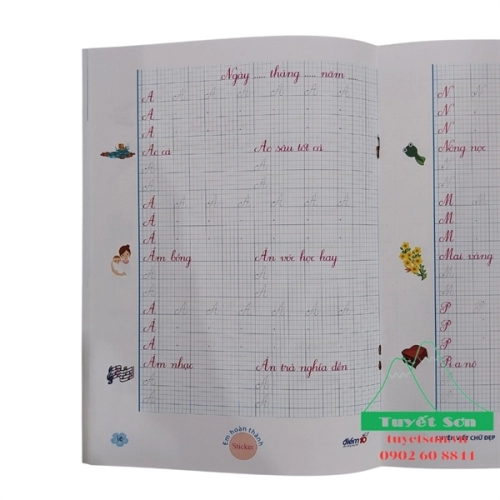 Ngày ..... tháng ..... năm
A A A A A A A
A
A
Ao cá Ao sâu tốt cá
A A
A A
Ă Ă Ă Ă Ă Ă Ă
Ă
Ă
Ẵm bồng Ăn vóc học hay
Ă Ă
Ă Ă
Â Â Â Â Â Â Â
Â
Â
Âm nhạc Ân trả nghĩa đền
Â Â
Â Â
Em hoàn thành
Sticker
điểm 10
N N
N
N
Nòng nọc
M
M
M
Mai vàng
P
P
P
Pi a nô
LUYỆN VIẾT CHỮ ĐẸP
Tuyết Sơn
tuyetson.vn
0902 60 8844